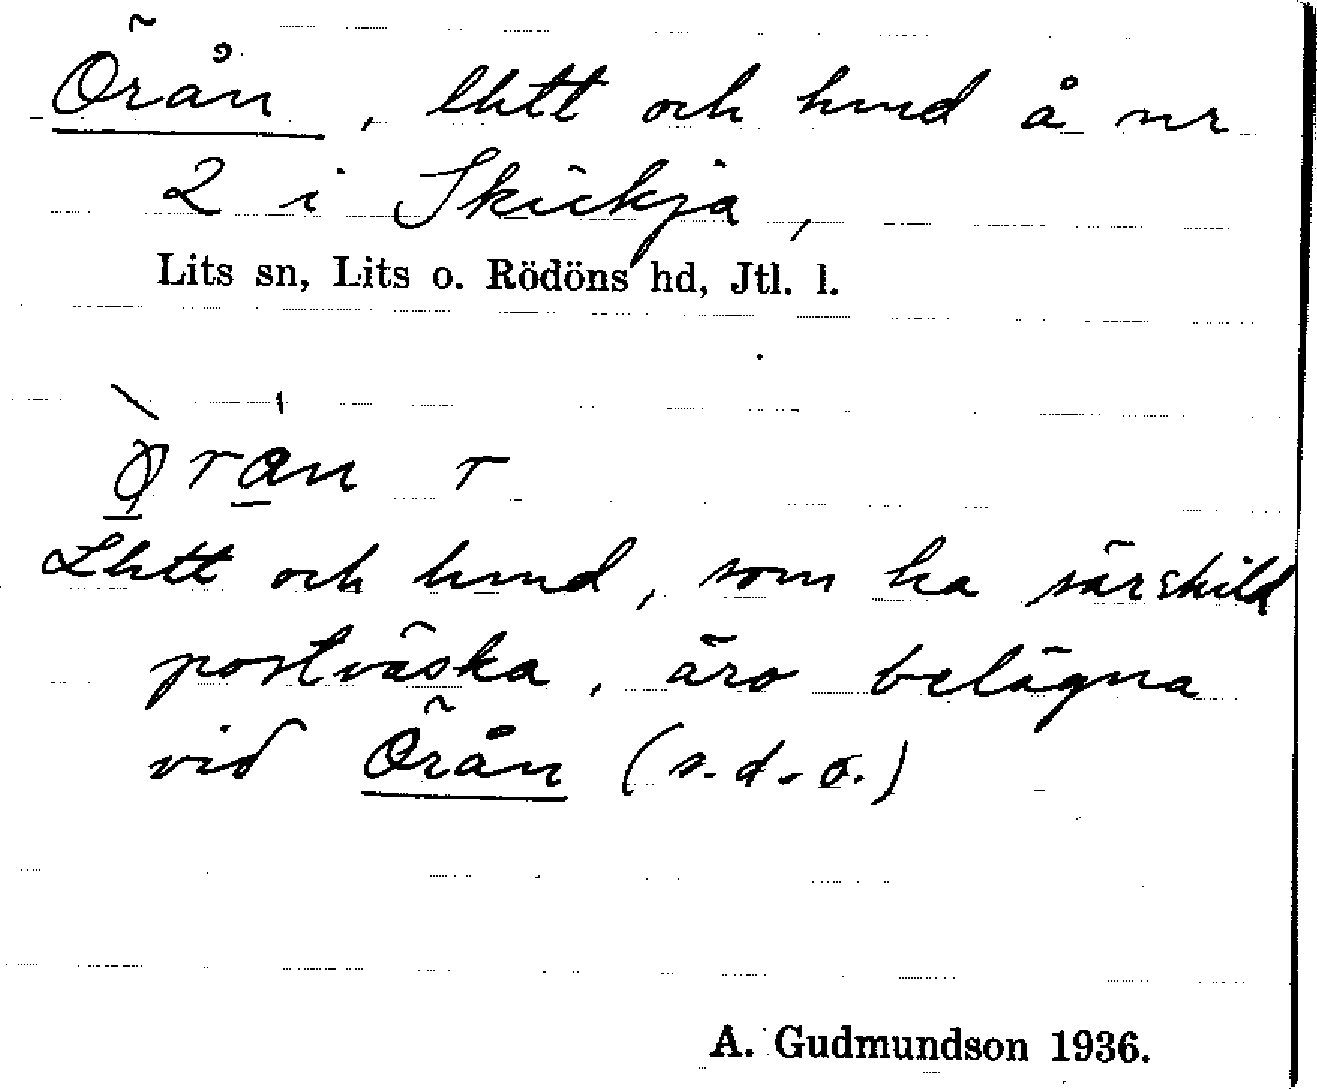 Örån, lhtt och hmd å nr
2 i Skickja,
Lits sn, Lits o. Rödöns hd, Jtl. l.
r
Lhtt och hmd, som ha särskild
postväska, äro belägna
vid Örån (s.d.o.)
A. Gudmundson 1936.